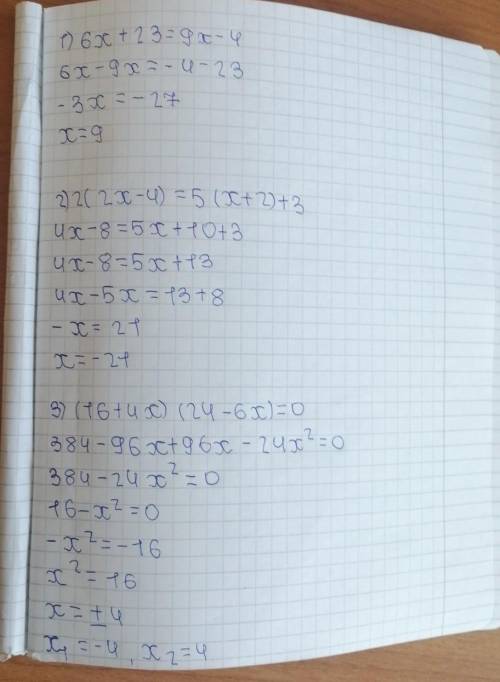 1) 6x+23=9x-4
6x-9x=-4-23
-3x=-27
x=9
2) 2(2x-4)=5(x+2)+3
4x-8=5x+10+3
4x-8=5x+13
4x-5x=13+8
-x=21
x=-21
3) (16+4x)(24-6x)=0
384-96x+96x-24x²=0
384-24x²=0
16-x²=0
-x²=-16
x²=16
x=±4
x₁=-4, x₂=4